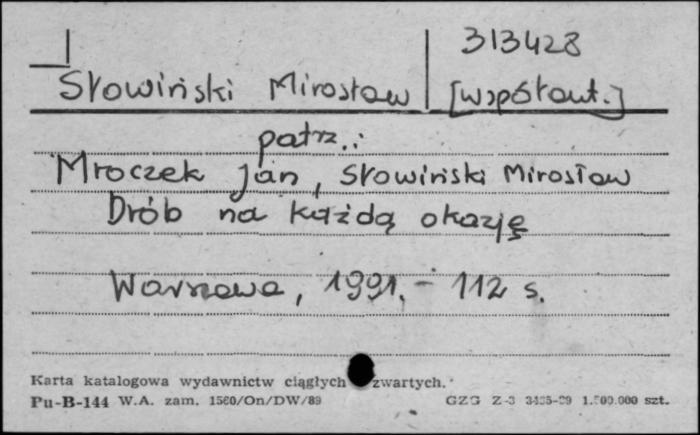 313428
Słowiński Mirosław [współaut.]
patrz.:
Mroczek Jan, Słowiński Mirosław
Drób na każdą okazję
Warszawa, 1991. - 112 s.
Karta katalogowa wydawnictw ciągłych zwartych.
Pu-B-144 W.A. zam. 1560/On/DW/89 GZG Z-3 1.500.000 szt.